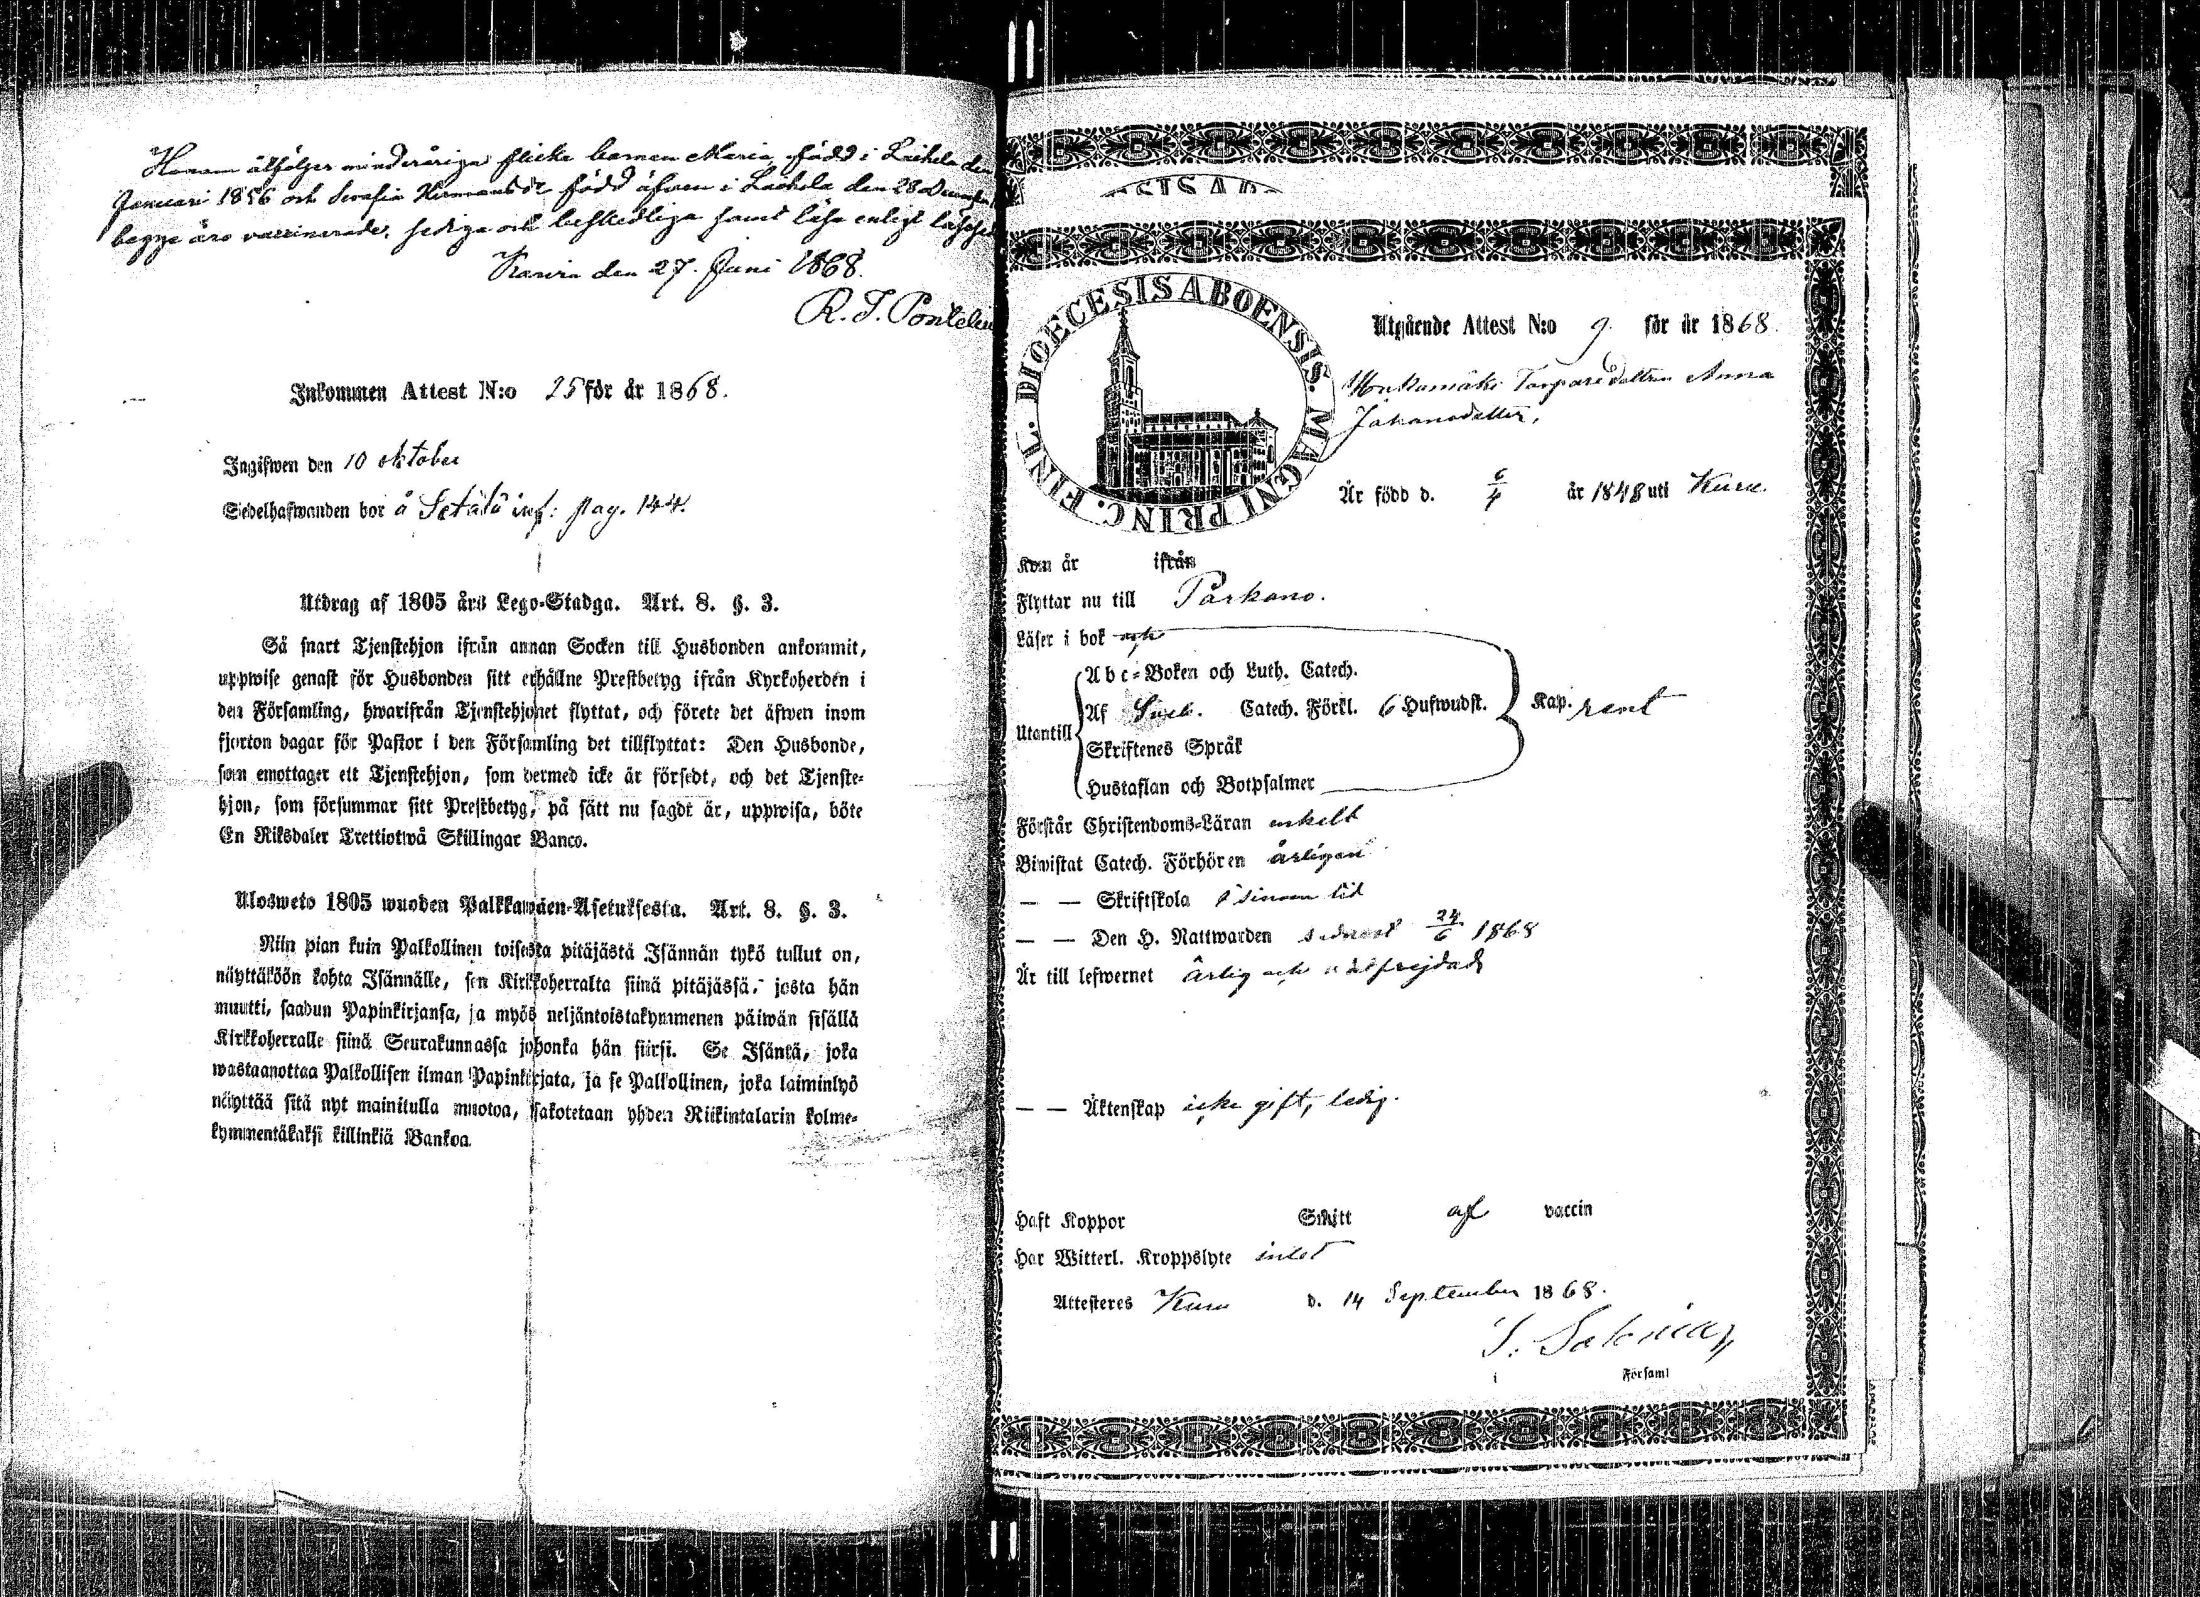 Honom åtföljer minderåriga flicke barnen Maria, född i Laihela den
Januari 1856 och Serafia född äfven i Laihela den 28 December
begge äro vaccinerade, sediga och beskedliga samt läsa enligt
Karvia den 27. Juni 1868.
R. J.
Inkommen Attest N:o 25 för år 1868.
Ingifwen den 10 oktober
Sedelhafwanden bor å Setälä inh: pag. 144.
Utdrag af 1805 års Lego-Stadga. Art. 8. §. 3.
Så snart Tjenstehjon ifrån annan Socken till Husbonden ankommit,
uppwise genast för Husbonden sitt erhållne Prestbetyg ifrån Kyrkoherden i
den Församling, hwarifrån Tjenstehjonet flyttat, och förete det äfwen inom
fjorton dagar för Pastor i den Församling det tillflyttat: Den Husbonde,
som emottager ett Tjenstehjon, som dermed icke är försedt, och det Tjenste-
hjon, som försummar sitt Prestbetyg, på sätt nu sagdt är, uppwisa, böte
En Riksdaler Trettiotwå Skillingar Banco.
Ulosweto 1805 wuoden Palkkawäen-Asetuksesta. Art. 8. §. 3.
Niin pian kuin Palkollinen toisesta pitäjästä Isännän tykö tullut on,
näyttäköön kohta Isännälle, sen Kirkkoherralta siinä pitäjässä, josta hän
muutti, saadun Papinkirjansa, ja myös neljäntoistakymmenen päiwän sisällä
Kirkkoherralle siinä Seurakunnassa johonka hän siirsi. Se Isäntä, joka
wastaanottaa Palkollisen ilman Papinkirjata, ja se Palkollinen, joka laiminlyö
näyttää sitä nyt mainitulla muotoa, sakotetaan yhden Riikintalarin kolme-
kymmentäkaksi killinkiä Bankoa.
DIOECESIS ABOENSIS. MAGNI PRINC. FINL.
Utgående Attest N:o 9. för år 1868.
Torparedottren Anna
Johansdotter,
Är född d. 6/4 år 1848 uti Kuru.
Kom år ifrån
Flyttar nu till Parkano.
Läser i bok och
Abc-Boken och Luth. Catech.
Utantill Af Sveb. Catech. Förkl. 6 Hufwudst. Kap. rent
Skriftenes Språk
Hustaflan och Botpsalmer
Förstår Christendoms-Läran enkelt
Biwistat Catech. Förhören årligen
— — Skriftskola i sinom tid
— — Den H. Nattwarden sednast 24/6 1868
Är till lefwernet ärlig och välfrejdad
— — Äktenskap icke gift, ledig.
Haft Koppor Smitt af vaccin
Har Witterl. Kroppslyte intet
Attesteres Kuru d. 14 September 1868.
i Församl